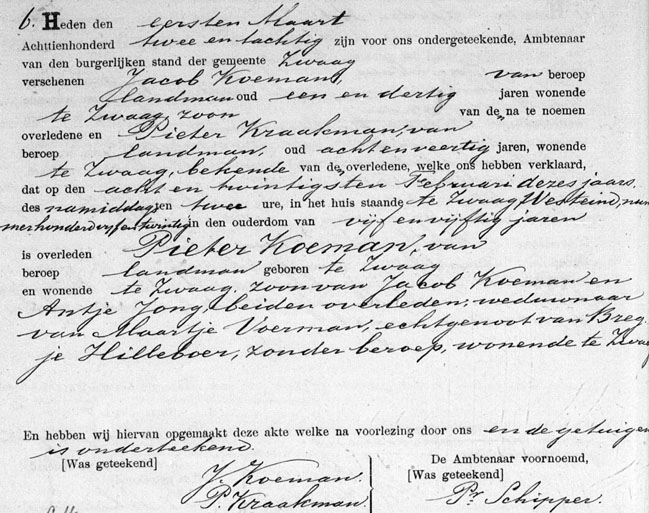 6. Heden den eersten Maart
Achttienhonderd twee en tachtig zijn voor ons ondergeteekende, Ambtenaar
van den burgerlijken stand der gemeente Zwaag
verschenen Jacob Koeman, van beroep
landman oud een en dertig jaren wonende
te Zwaag, zoon van de "na te noemen
overledene en Pieter Kraakman, van
beroep landman, oud acht en veertig jaren, wonende
te Zwaag, bekende van de "overledene, welke ons hebben verklaard,
dat op den acht en twintigsten Februari dezes jaars.
des namiddag ten twee ure, in het huis staande te Zwaag, Westeind, num
merhonderd vijf en twintig in den ouderdom van vijf en vijftig jaren
is overleden Pieter Koeman, van
beroep landman geboren te Zwaag
en wonende te Zwaag, zoon van Jacob Koeman en
Antje Jong, beiden overleden, weduwnaar
van Maartje Voerman, echtgenoot van Breg-
je Hilleboer, zonder beroep, wonende te Zwaag
En hebben wij hiervan opgemaakt deze akte welke na voorlezing door ons en de getuigen
is onderteekend.
[Was geteekend]
J. Koeman.
P. Kraakman.
De Ambtenaar voornoemd,
[Was geteekend]
Pr. Schipper.